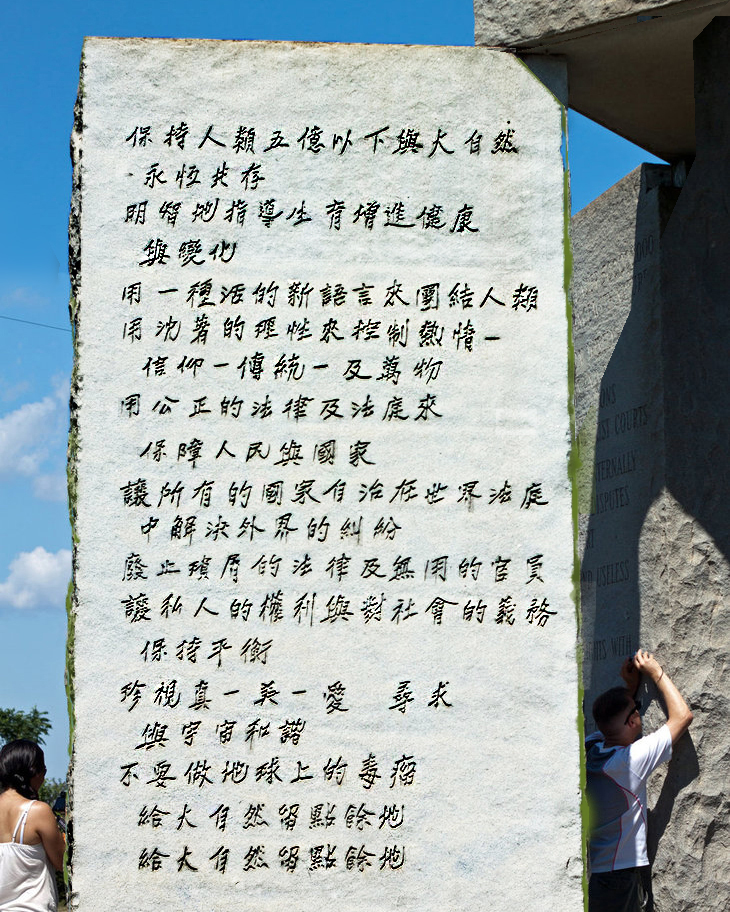 保持人類五億以下與大自然
永恆共存
明智地指導生育增進健康
與變化
用一種活的新語言來團結人類
用沈著的理性來控制熱情一
信仰一傳統一及萬物
用公正的法律及法庭來
保障人民與國家
讓所有的國家自治在世界法庭
中解決外界的糾紛
廢止瑣屑的法律及無用的官員
讓私人的權利與對社會的義務
保持平衡
珍視真一美一愛 尋求
與宇宙和諧
不要做地球上的毒瘤
給大自然留點餘地
給大自然留點餘地
COURTS
DISPUTES
USELESS
WITH